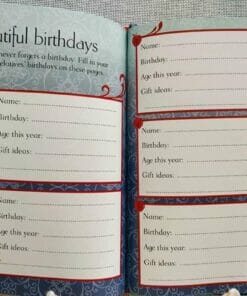 utiful birthdays
never forgets a birthday. Fill in your
elatives' birthdays on these pages.
Name:
Birthday:
Age this year:
Gift ideas:
Name:
Birthday:
Age this year:
Gift ideas:
Name:
Birthday:
Age this year:
Gift ideas:
Name:
Birthday:
Age this year:
Gift ideas:
Name:
Birthday:
Age this year:
Gift ideas: